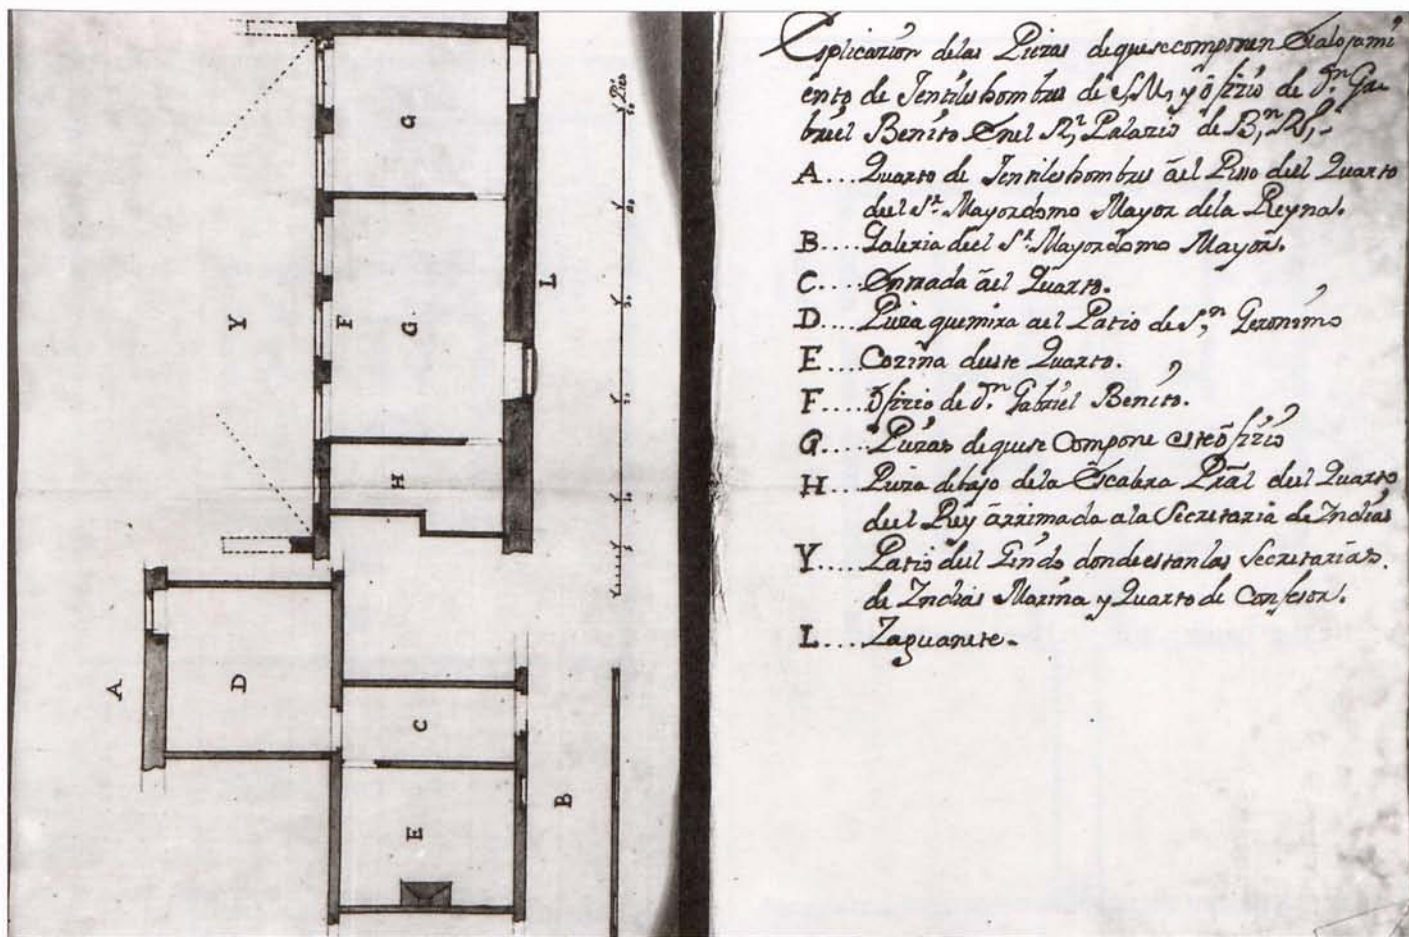 Esplicazion de las Piezas de que se componen El alojami
ento de Jentileshombres de S.M, y ôfizio de dn. Ga-
briel Benito En el Rl, Palazio de Bn, Ro,-
A.... Quarto de Jentileshombres âel Piso deel Quarto
deel Sr. Mayordomo Mayor de la Reyna.
B.... Galeria deel Sr. Mayordomo Mayor.
C.... Entrada âel Quarto.
D.... Pieza que mira ael Patio de Sn, Geronimo
E.... Cozina deeste Quarto.
F.... Ôfizio de dn. Gabriel Benito.
G.... Piezas de que se Compone este ôfizio
H... Pieza debajo de la Escalera Prâl deel Quarto
deel Rey ârrimada a la Secretaria de Indias
Y.... Patio deel donde estan las Secretarias
de Indias Marina y Quarto de Confesor.
L.... Zaguanete.
Pies
G
Y
F
G
L
H
A
D
C
B
E